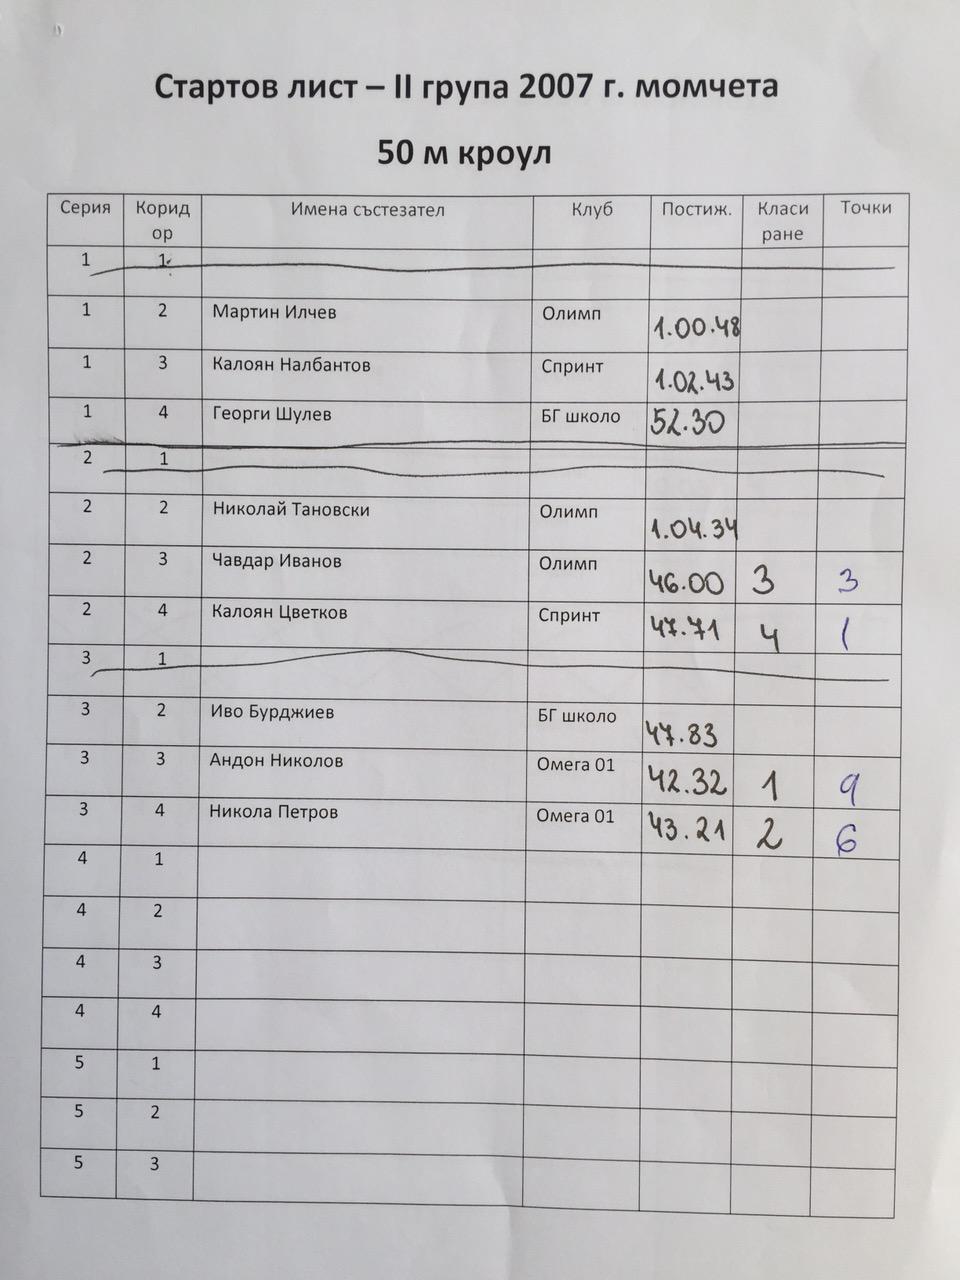 Стартов лист – II група 2007 г. момчета
50 м кроул
Серия Коридор Имена състезател Клуб Постиж. Класиране Точки
1 1
1 2 Мартин Илчев Олимп 1.00.48
1 3 Калоян Налбантов Спринт 1.02.43
1 4 Георги Шулев БГ школо 52.30
2 1
2 2 Николай Тановски Олимп 1.04.34
2 3 Чавдар Иванов Олимп 46.00 3 3
2 4 Калоян Цветков Спринт 47.71 4 1
3 1
3 2 Иво Бурджиев БГ школо 47.83
3 3 Андон Николов Омега 01 42.32 1 9
3 4 Никола Петров Омега 01 43.21 2 6
4 1
4 2
4 3
4 4
5 1
5 2
5 3